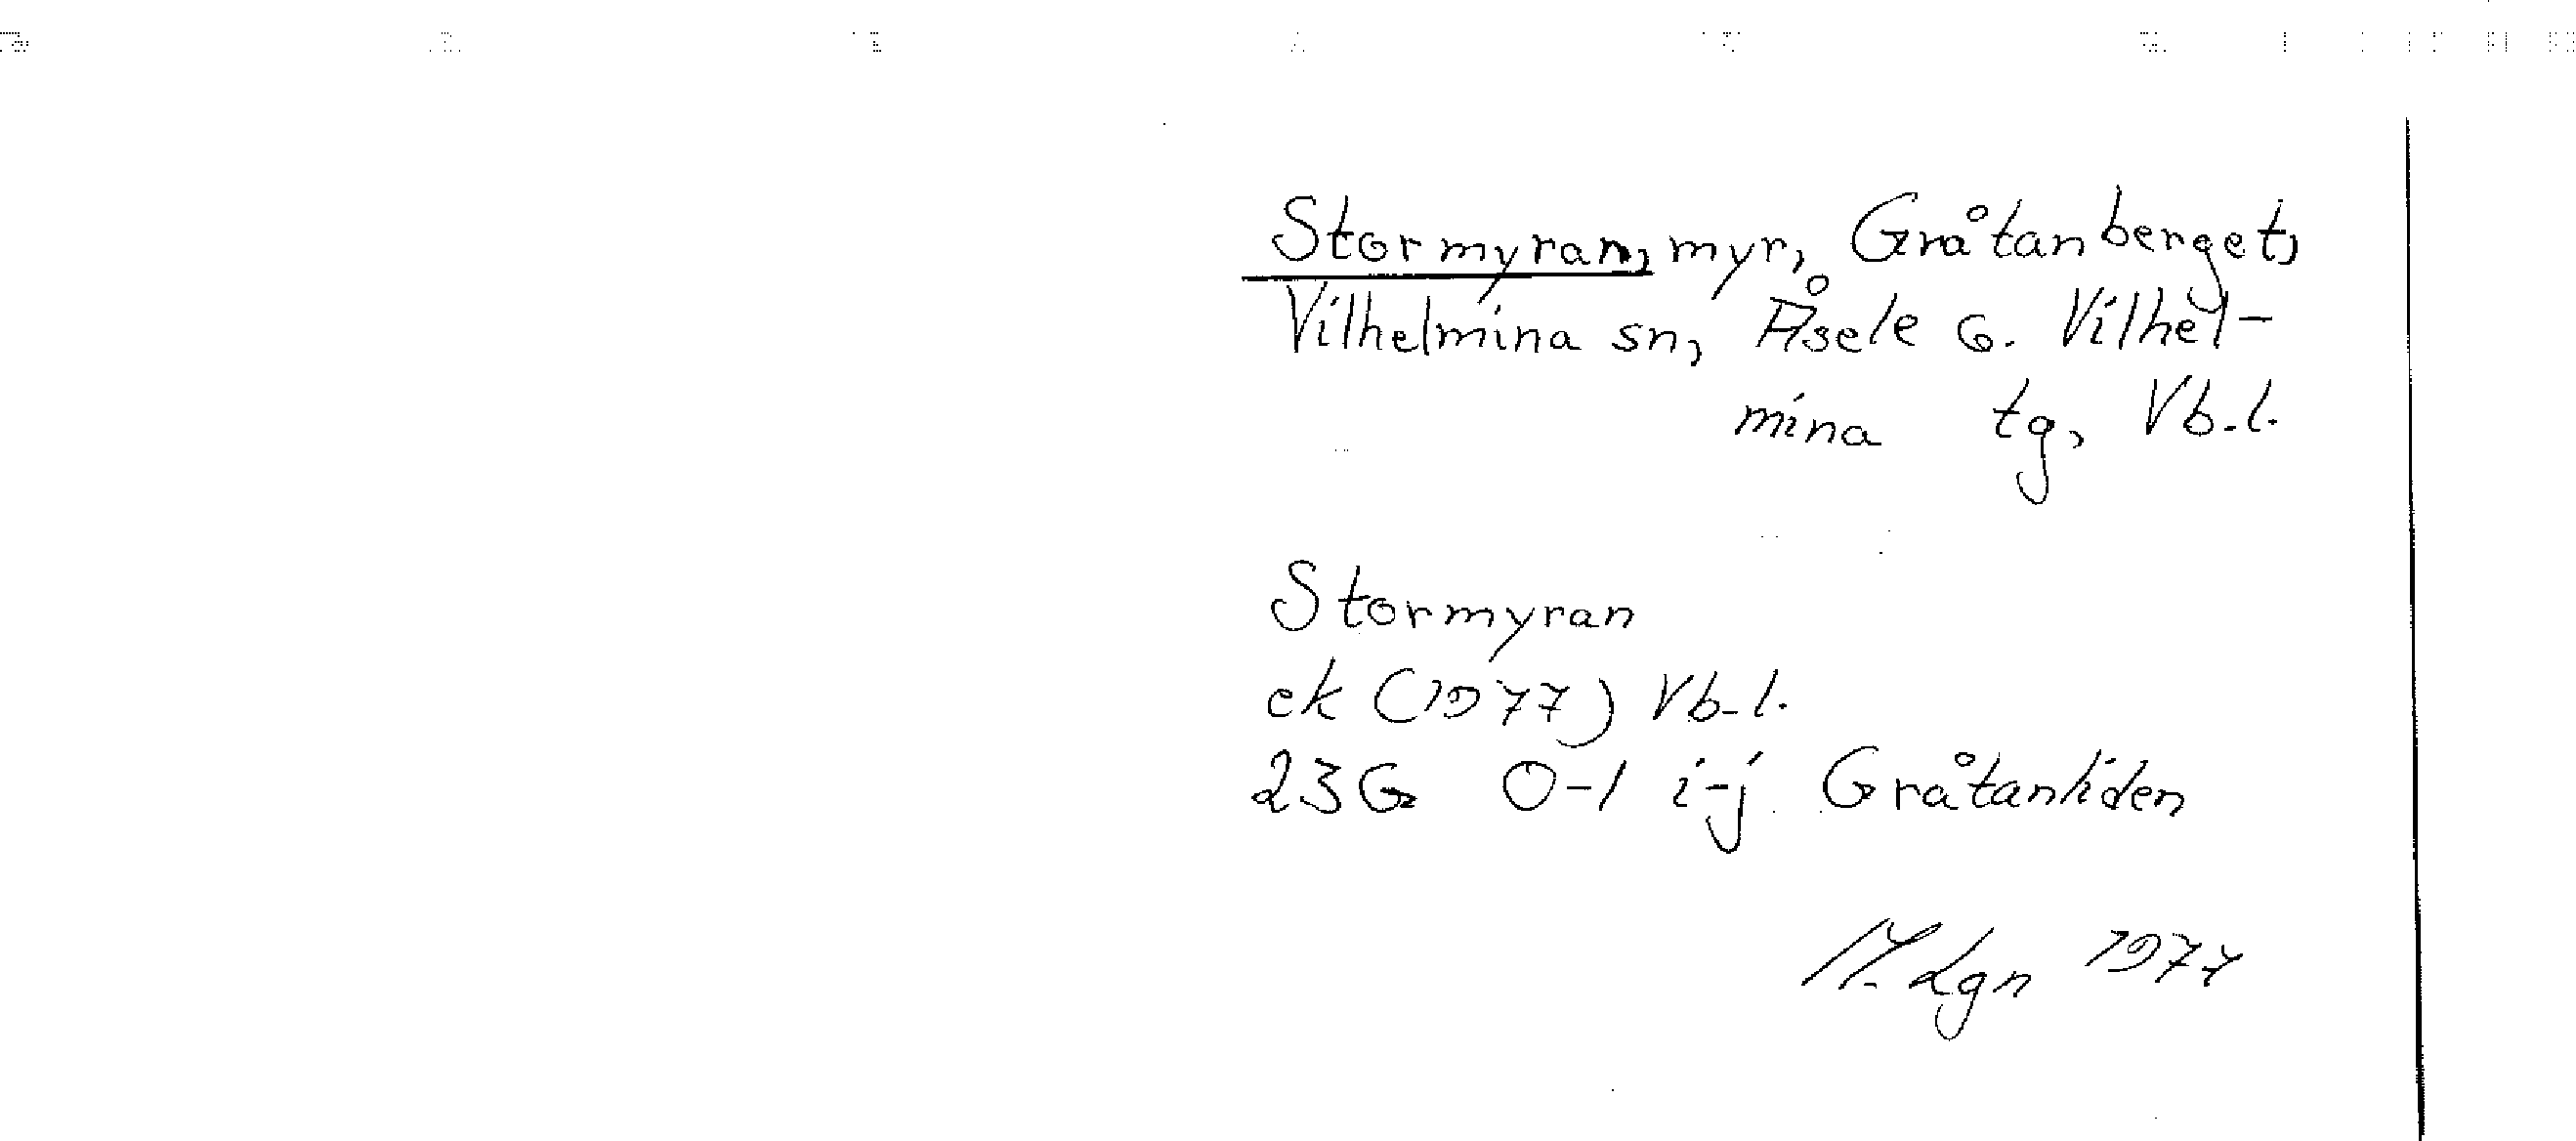 Stormyran, myr, Gråtanberget,
Vilhelmina sn, Åsele o. Vilhel-
mina tg, Vb. l.
Stormyran
ek (1977) Vb. l.
23G 0-1 i-j Gråtanliden
M. Lgn 1977